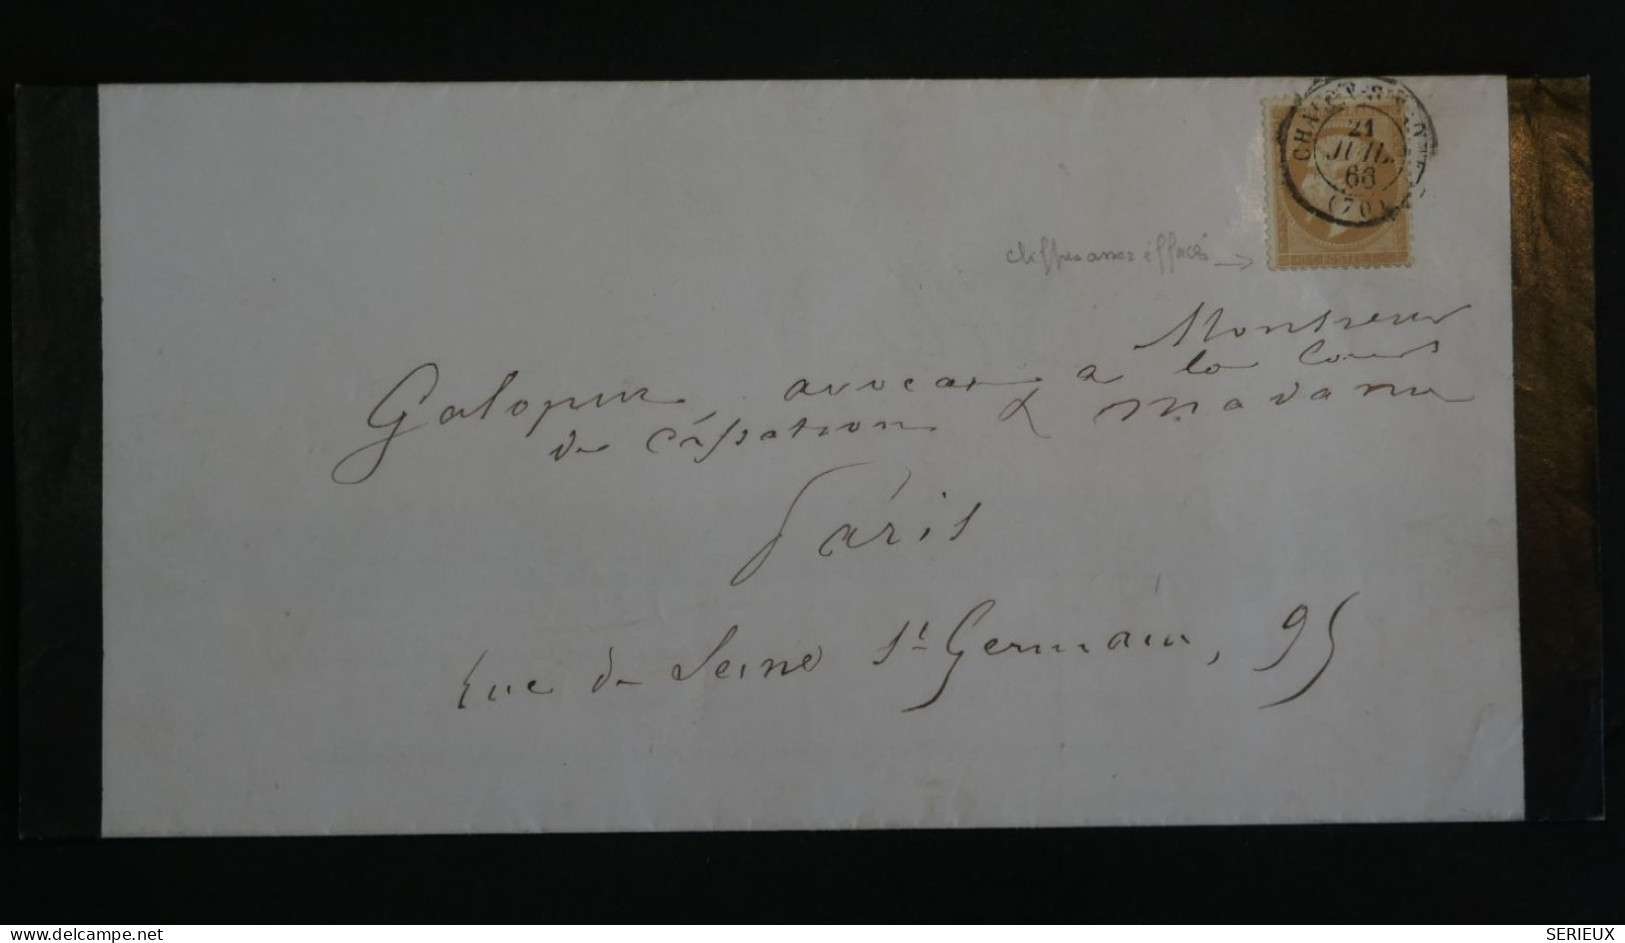 CHALON-S-SAÔNE
21
JUIL
66
(70)
POSTES
chiffres assez éffacés →
Monsieur
Galopin, avocat à la Cour
de Cassation & Madame
Paris
Rue de Seine St Germain, 95
www.delcampe.net
SERIEUX